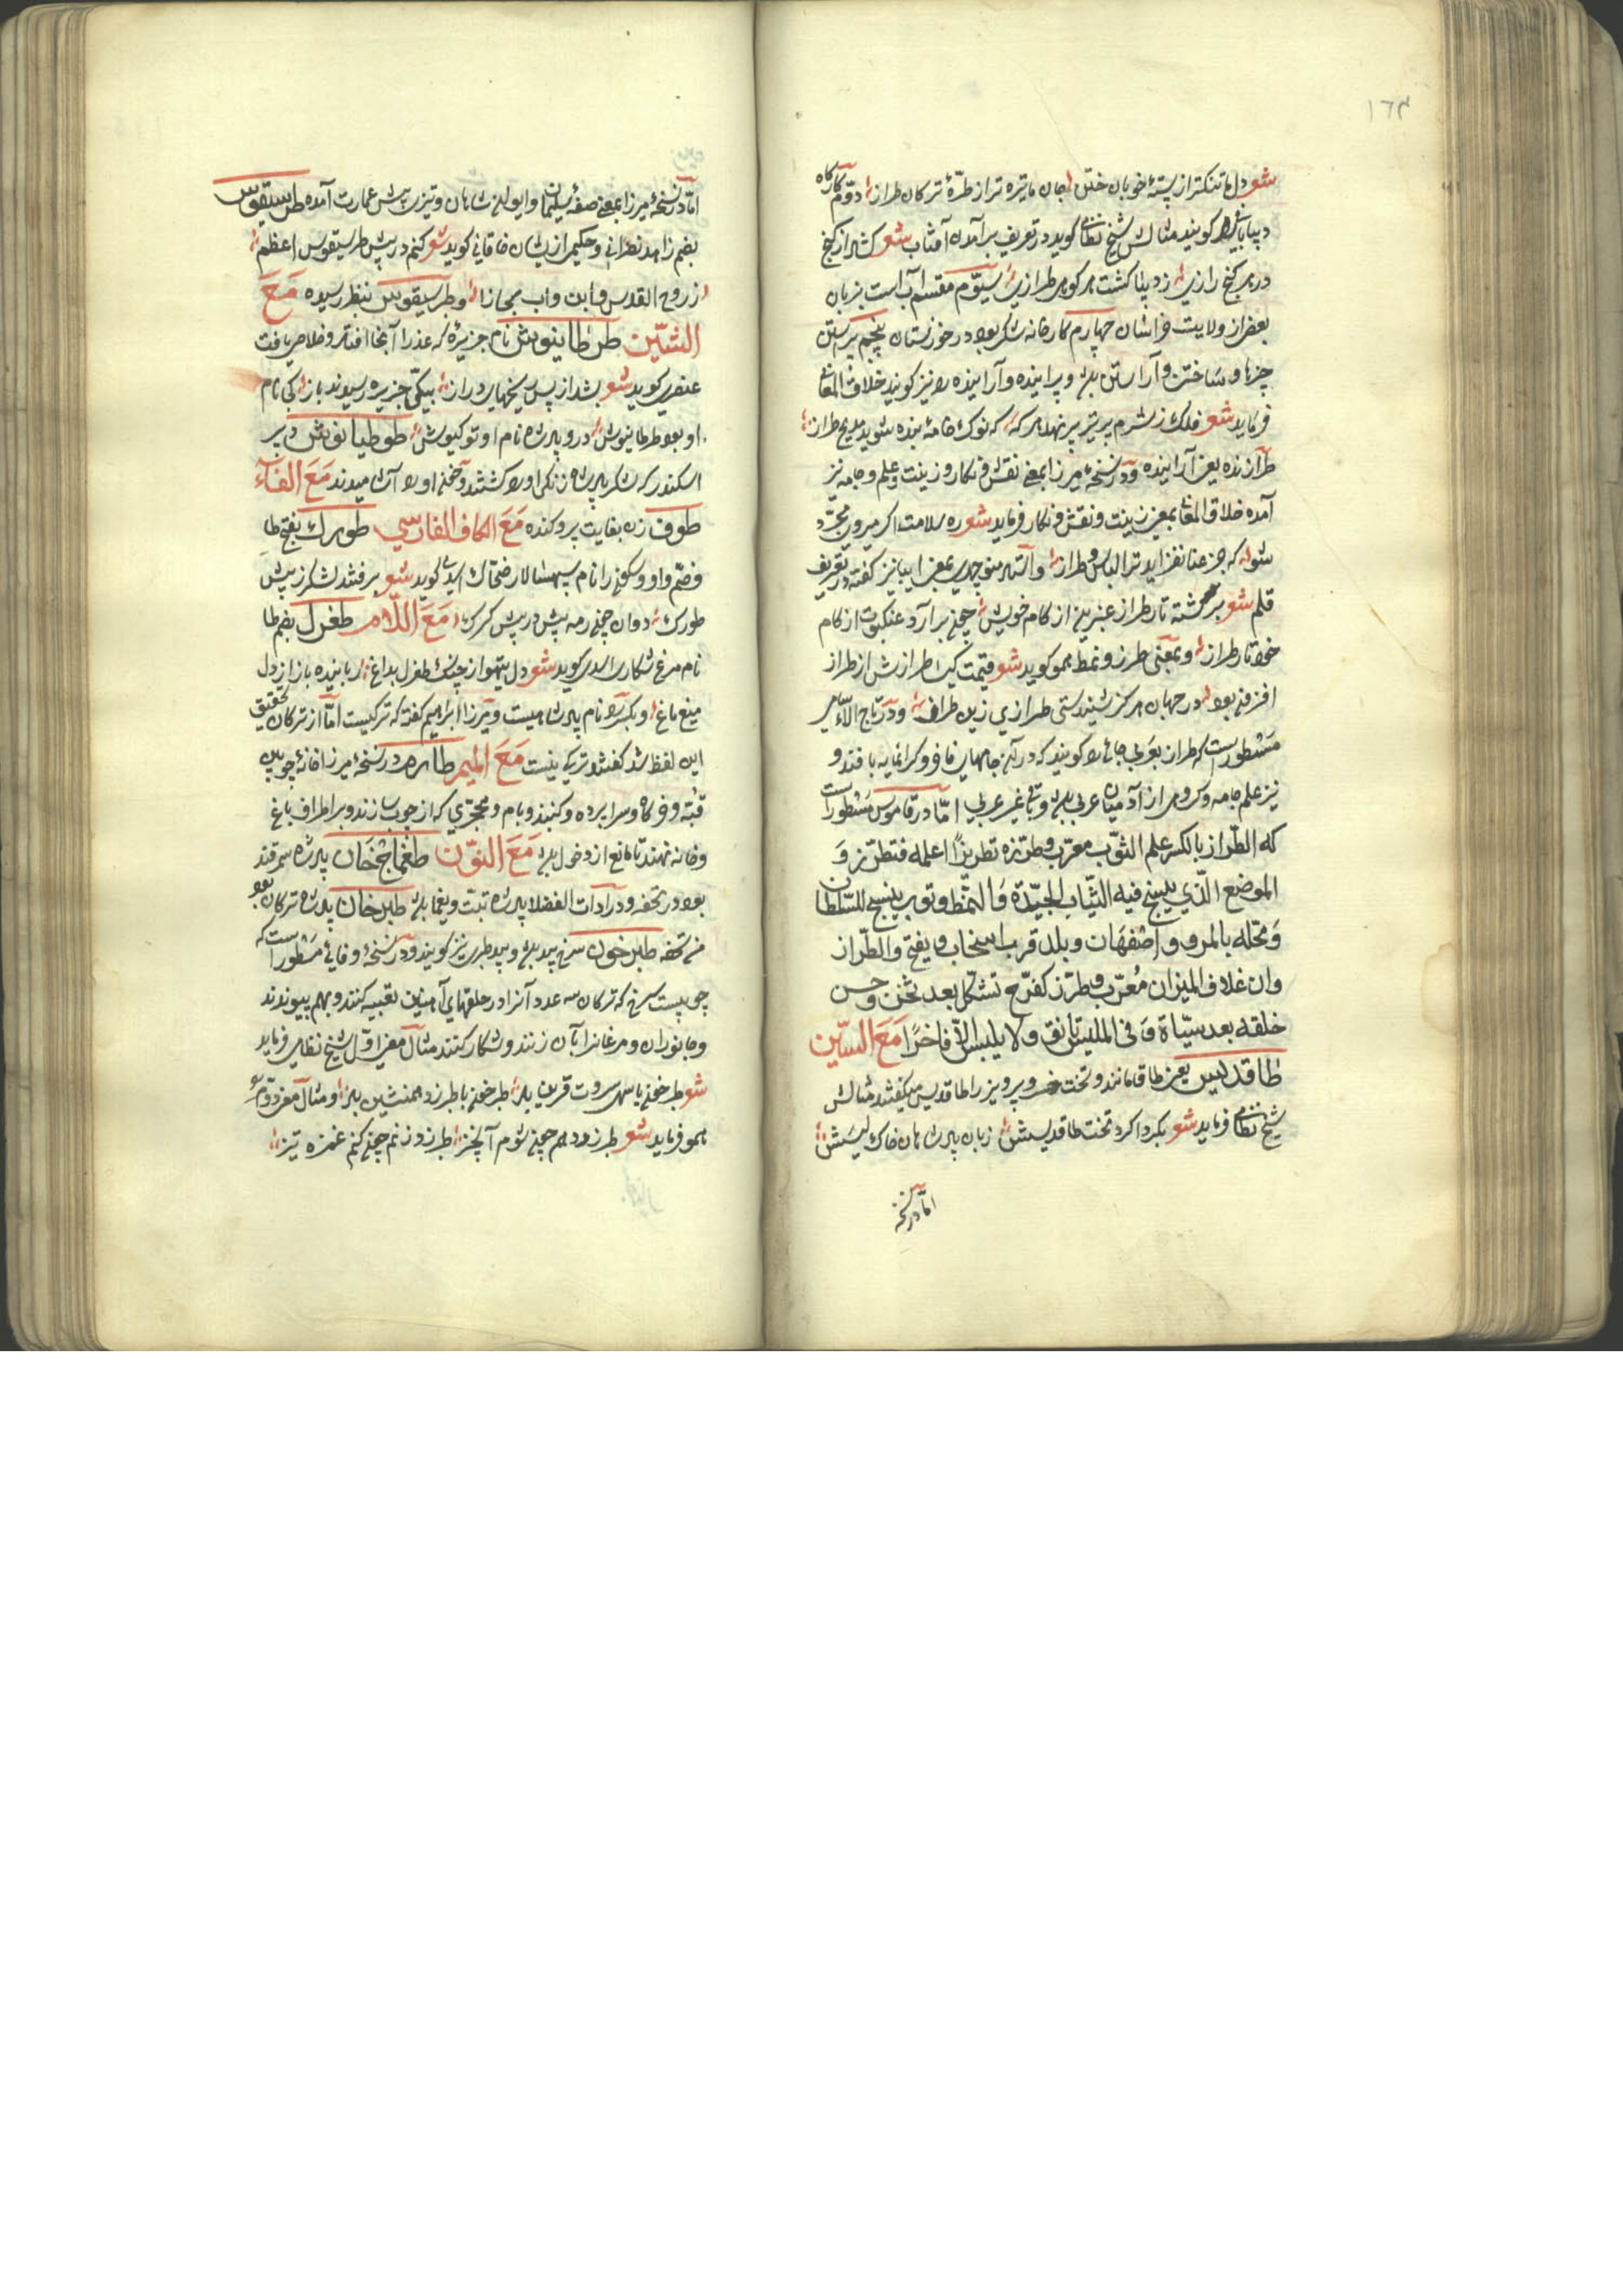 ١٦٣
شعر دل ما تنکتر از پستهٔ خوبان ختن جان ما تیره تر از طرّهٔ ترکان طراز دوّم کارکاه
دیبا باشد کویند مثالش شیخ نظامی کوید در تعریف برآمدن آفتاب شعر کشاد از کنج
در هر کنج رازی ز دیبا کشت هر کویی طرازی سیّوم مقسم آب است بزبان
بعضی از ولایت خراسان چهارم کارخانه شکر بود در خوزستان پنجم پیراستن
چیزها و ساختن و آراستن بود و پیراینده و آراینده را نیز کویند خلاق المعانی
فرماید شعر فلک ز شرم بر تیر بر نهد هر که که نوک خامهٔ بنده شود مدیح طراز
طرازنده یعنی آراینده و در نسخهٔ میرزا بمعنی نقش و نکار و زینت و علم و جامه نیز
آمده خلاق المعانی بمعنی زینت و نقش و نکار فرماید شعر ره سلامت اکر میروی مجرّد
شو که جز عنا نفزاید ترا لباس و طراز و استاد منوچهری بعضی ابیات نیز کفته در تعریف
قلم شعر برکشته تار طراز عنبرین از کام خویش چون برآرد عنکبوت از کام
خود تار طراز و بمعنی طرز و نمط همو کوید شعر قیمت یک طرازش از طراز
افزون بود در جهان هرکز شنیدستی طرازی زین طراف و در تاج الاسامی
مسطور است که طراز بعربی جائی را کویند که در آن جامهای فاخر و کرانمایه بافند و
نیز علم جامه و کروهی از آدمیان عربی بود و غیر عربی امّا در قاموس مسطور است
که الطّراز بالکسر علم الثوب معرّب و طرّزه تطریزًا اعلمه فتطرّز وَ
الموضع الّذی ینسج فیه الثّیاب الجیّدة وَ النمط و ثوب ینسج للسّلطان
وَ محّله بالمرو و اصفهان و بلد قرب اسفجاب و یفتح و الطّراز
وان غلاف المیزان مُعرّب و طرز کفرح تشکل بعد ثخن و حسن
خلقه بعد سیّاة وَ فی الملبس تانق و لا یلبس الّا فاخرًا مَعَ السّین
طاقدیس یعنی طاق مانند و تخت خسرو پرویز را طاقدیس میکفتند مثالش
شیخ نظامی فرماید شعر بکرداکرد تخت طاقدیسش زبان پادشاهان خاک لیسش
امّا در نسخهٔ
امّا در نسخهٔ میرزا بمعنی صفّهٔ سلیمان و ایوان شاهان و نیز پیش عمارت آمده طرسیقوس
بضم زاهد نصرانی و حکیمی از یشان خاقانی کوید شعر کنم در پیش طرسیقوس اعظم
ز روح القدس و ابن و اب مجازا و طرسیقوس بنظر رسیده مَعَ
الشّین طرطانیوش نام جزیرهٔ که عذرا آنجا افتاد و خلاص یافت
عنصری کوید شعر بشد از پس رنجهای دراز بیکی جزیره رسیدند باز کی نام
او بود طرطانیوش درو پادشاه نام او توکیوش طوطیانوش دبیر
اسکندر که لشکر پادشاه زنکی او را کشتند و خون او را آشامیدند مَعَ الفاءَ
طوف زه بغایت پر و کنده مَعَ الکاف الفارسی طورک بفتح طا
و ضمّ واو و سکون را نام سپهسالار ضحّاک اسدی کوید شعر برفتند لشکر ز پیش
طورک دوان چون رمه پیش در پیش کرک مَعَ اللّام طغرل بضم طا
نام مرغ شکاری اسدی کوید شعر دل تیهو از چنک طغرل بداغ رباینده باز از دل
میغ ماغ و بکسر را نام پادشاهیست و میرزا ابراهیم کفته که ترکیست امّا از ترکان تحقیق
این لفظ شد کفتند ترکی نیست مَعَ المیم طارم در نسخهٔ میرزا خانهٔ چوبین
قبّه و خرکاه و سراپرده و کنبد و بام و محجّری که از چوب سازند و بر اطراف باغ
و خانه نهند تا مانع از دخول بود مَعَ النّون طمغاج خان پادشاه سمرقند
بود در تحفه و در ادات الفضلا پادشاه تبت و یغما بود طبرخان پادشاه ترکان بود
من تحفه طبرخون سرخ بید بود و بید طبری نیز کویند و در نسخهٔ وفایی مسطور است که
چوبیست سرخ که ترکان سه عدد آنرا در حلقهای آهنین تعبیه کنند و بهم پیوندند
و جانوران و مرغانرا بآن زنند و شکار کنند مثال معنی اوّل شیخ نظامی فرماید
شعر طبرخون با سهی سروت قرین باد طبرخون با طبرزد همنشین باد و مثال معنی دوّم
همو فرماید شعر طبرزد دهم چون شوم آبخیز طبرزد زنم چون کنم غمزه تیز